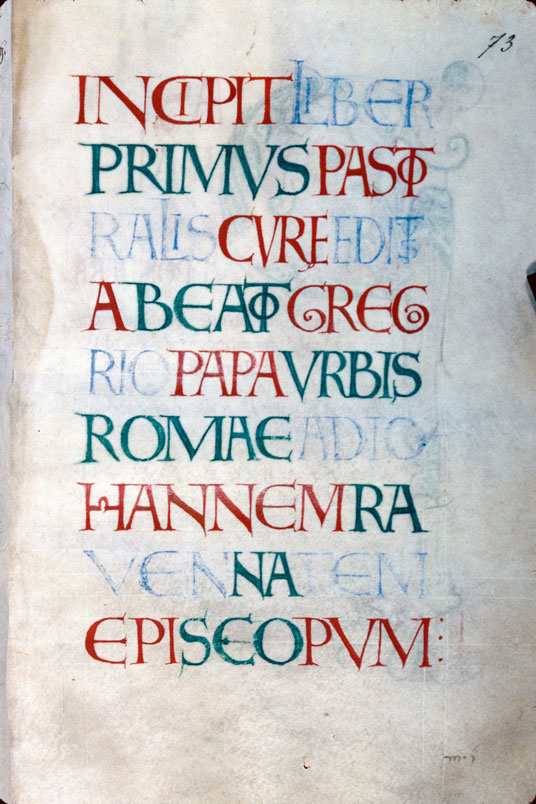 73
INCIPIT LIBER
PRIMVS PASTO
RALIS CVRĘ EDITS
A BEATO GREGO
RIO PAPA VRBIS
ROMAE AD IO
HANNEM RA
VENNATEM
EPISEOPVM: